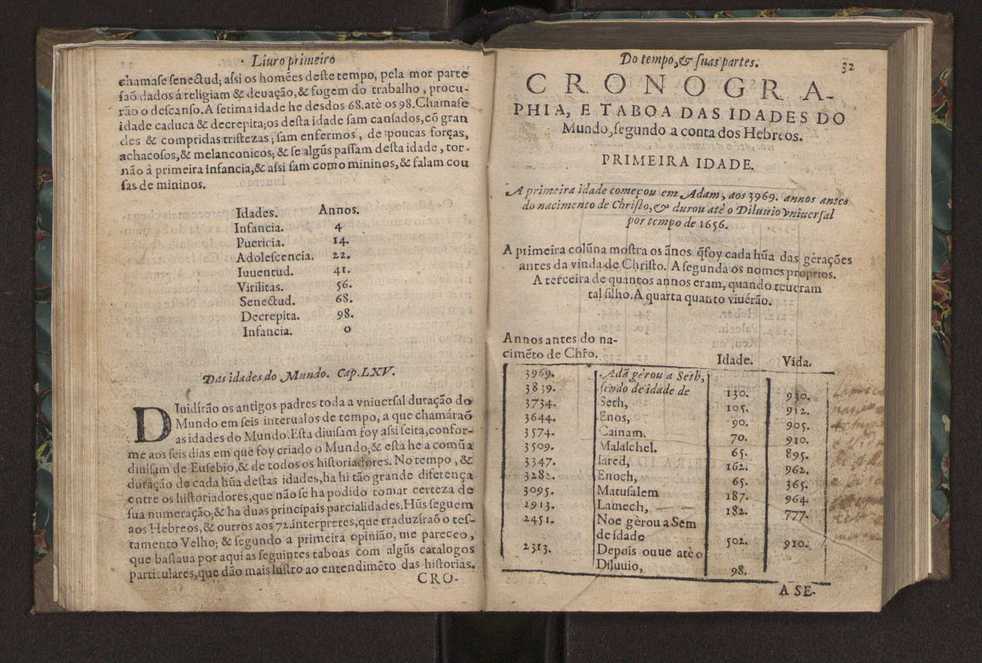 Liuro primeiro
chamase senectud; assi os homẽes deste tempo, pela mor parte
saõ dados á religiam & deuação, & fogem do trabalho, procu-
rão o descanso. A setima idade he desdos 68. até os 98. Chamase
idade caduca & decrepita; os desta idade sam cansados, cõ gran
des & compridas tristezas; sam enfermos, de poucas forças,
achacosos, & melanconicos; & se algũs passam desta idade, tor-
não á primeira infancia, & assi sam como mininos, & falam cou
sas de mininos.
Idades. Annos.
Infancia. 4
Puericia. 14.
Adolescencia. 22.
Iuuentud. 41.
Virilitas. 56.
Senectud. 68.
Decrepita. 98.
Infancia. 0
Das idades do Mundo. Cap. LXV.
DIuidirão os antigos padres toda a vniuersal duração do
Mundo em seis interualos de tempo, a que chamáraõ
as idades do Mundo. Esta diuisam foy assi feita, confor-
me aos seis dias em que foy criado o Mundo, & esta he a comũa
diuisam de Eusebio, & de todos os historiadores. No tempo, &
duração de cada hũa destas idades, ha hi tão grande diferença
entre os historiadores, que não se ha podido tomar certeza de
sua numeração, & ha duas principais parcialidades. Hũs seguem
aos Hebreos, & outros aos 72. interpretes, que traduziraõ o tes-
tamento Velho; & segundo a primeira opinião, me pareceo,
que bastaua por aqui as seguintes taboas com algũs catalogos
particulares, que dão mais lustro ao entendimẽto das historias.
CRO-
Do tempo, & suas partes. 32
CRONOGRA-
PHIA, E TABOA DAS IDADES DO
Mundo, segundo a conta dos Hebreos.
PRIMEIRA IDADE.
A primeira idade começou em Adam, aos 3969. annos antes
do nacimento de Christo, & durou atè o Diluuio vniuersal
por tempo de 1656.
A primeira colũna mostra os ãnos q̃ foy cada hũa das gèrações
antes da vinda de Christo. A segunda os nomes proprios.
A terceira de quantos annos eram, quando teueram
tal filho. A quarta quanto viuèrão.
Annos antes do na-
cimẽto de Chr̃o. Idade. Vida.
3969. Adã gèrou a Seth,
3839. sendo de idade de 130. 930.
3734. Seth, 105. 912.
3644. Enos, 90. 905.
3574. Cainam, 70. 910.
3509. Malalchel. 65. 895.
3347. Iared, 162. 962.
3282. Enoch, 65. 365.
3095. Matusalem 187. 964
2913. Lamech, 182. 777.
2451. Noe gèrou a Sem
de idade 502. 910.
2313. Depois ouue atè o
Diluuio, 98.
A SE-